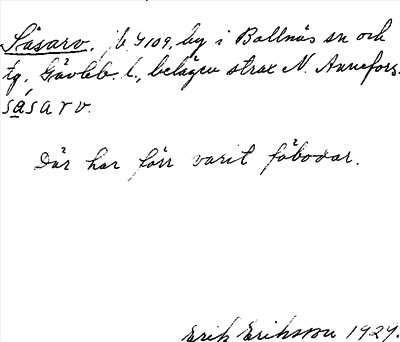 Såsarv. by i Bollnäs sn och
tg, Gävleb. l., belägen strax N. Annefors.
såsarv.
Där har förr varit fäbodar.
Erik Eriksson 1929.